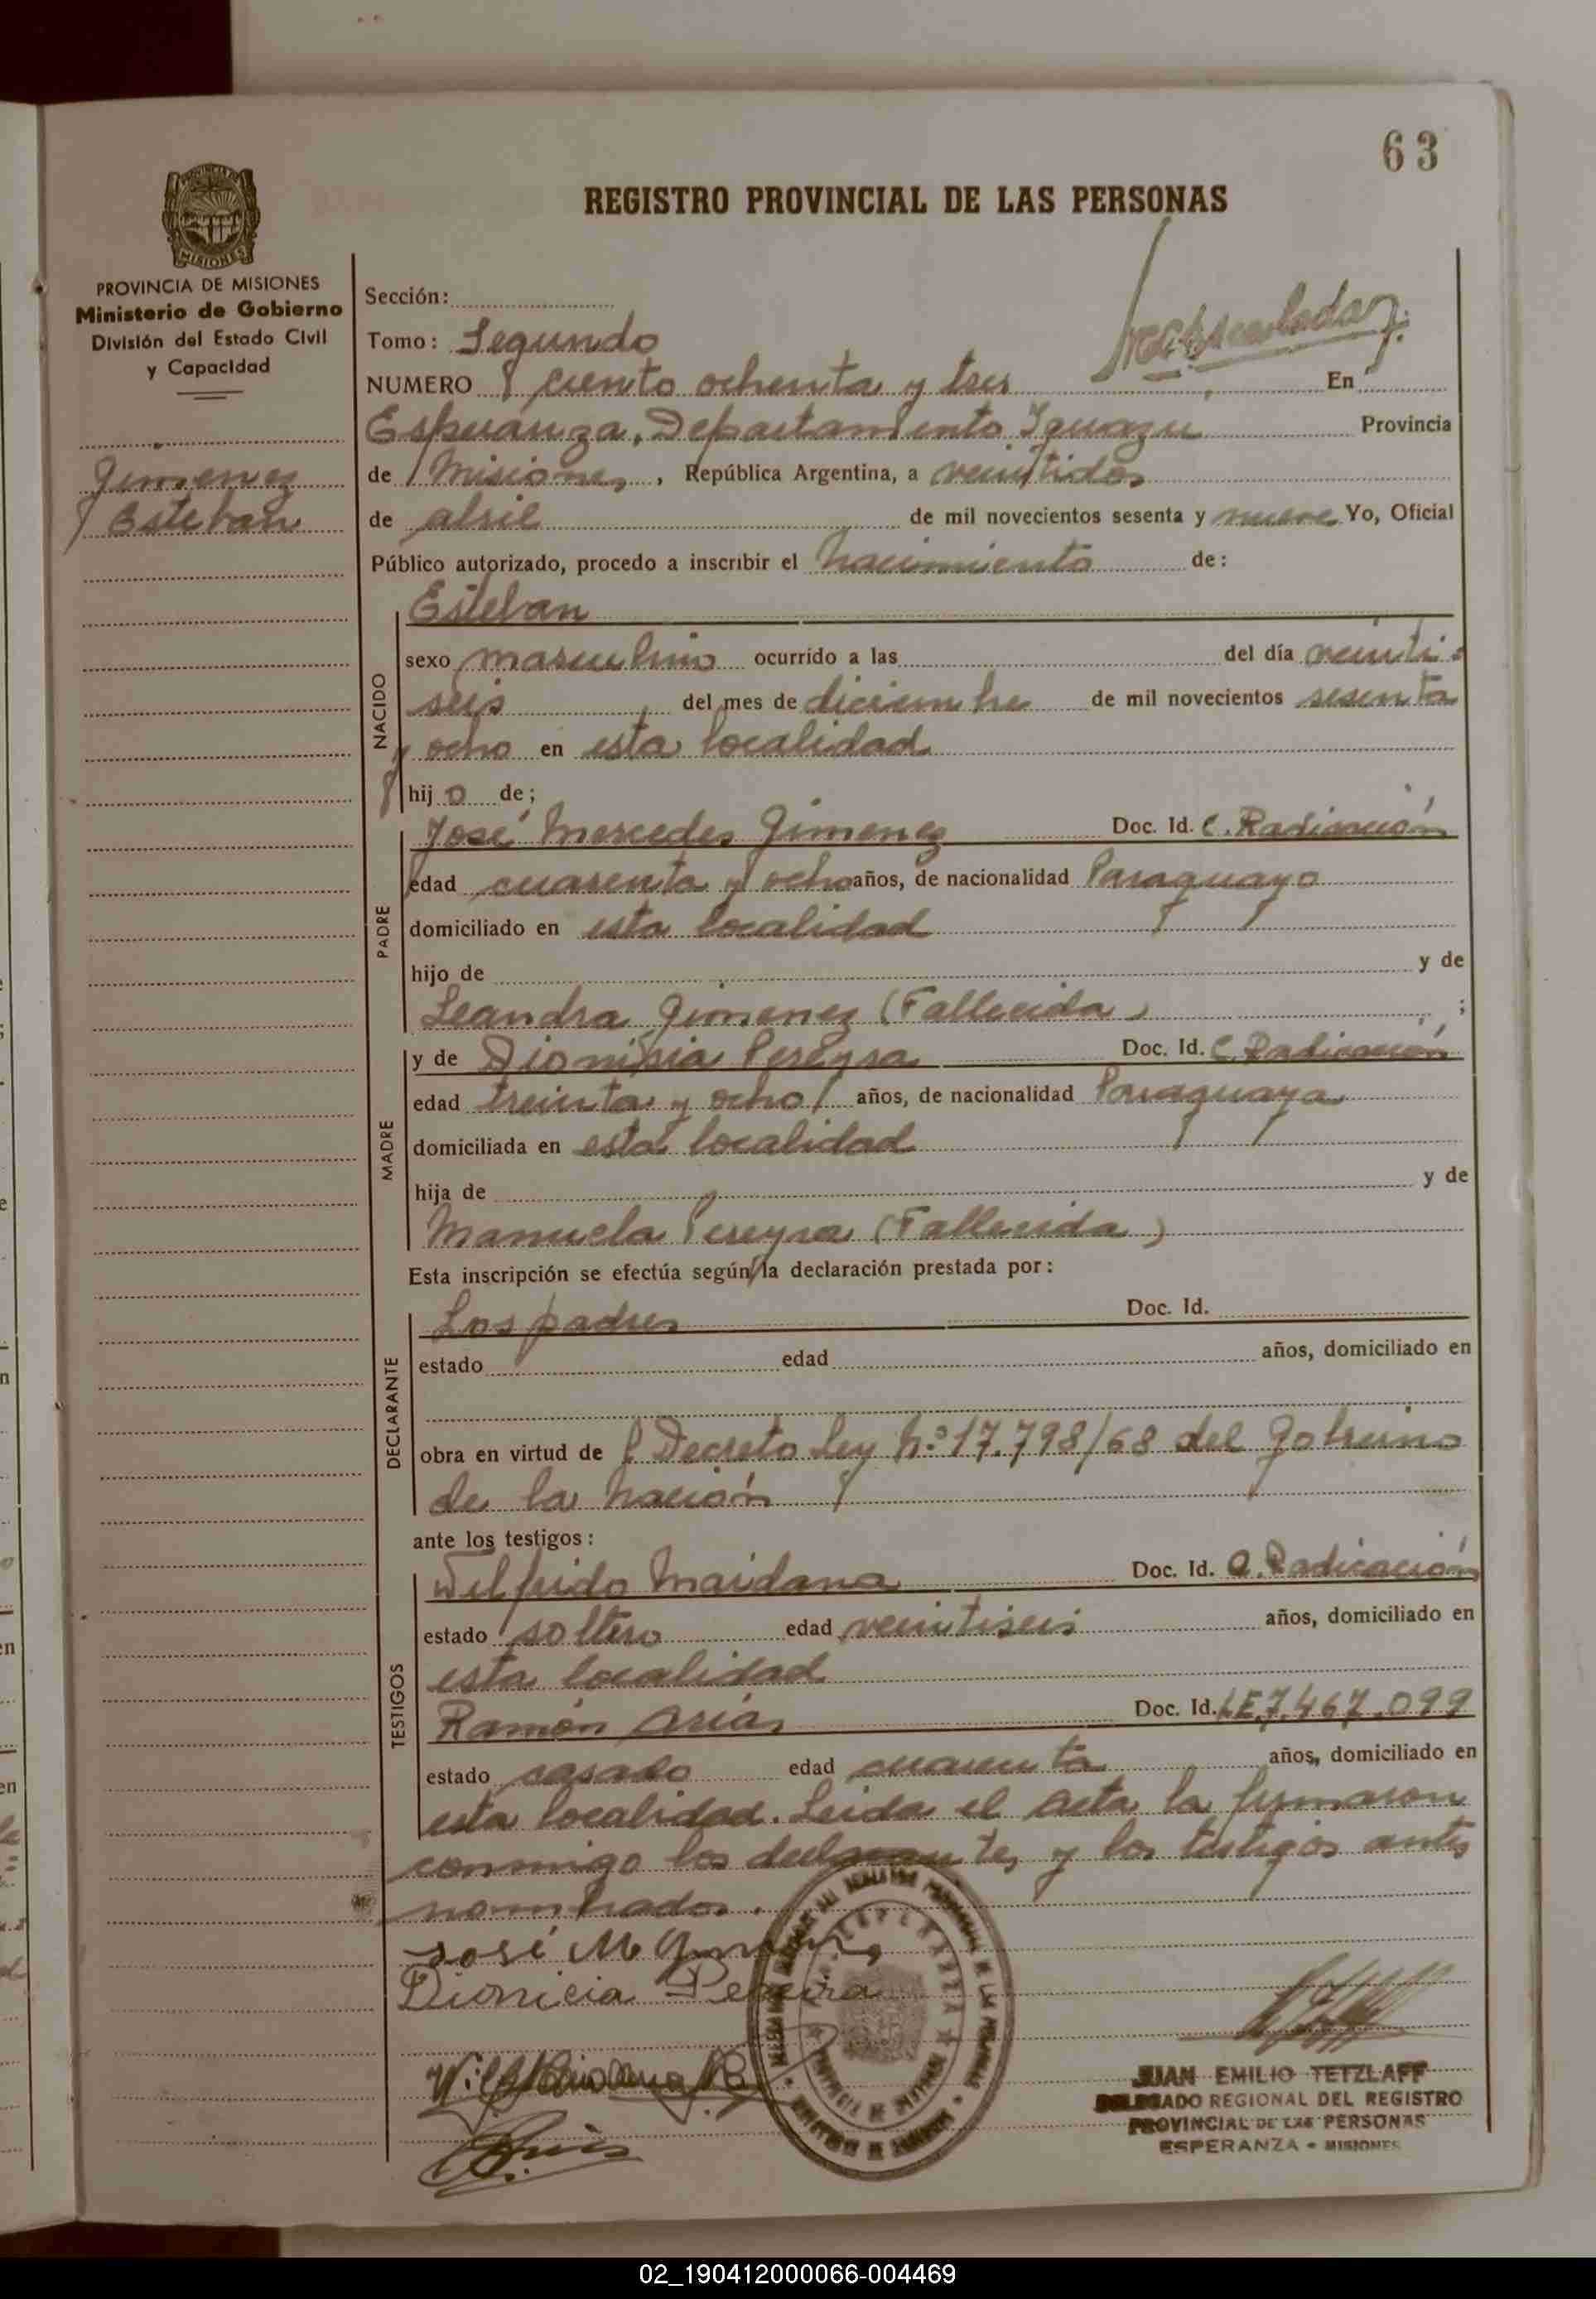 63
REGISTRO PROVINCIAL DE LAS PERSONAS
PROVINCIA DE MISIONES
Ministerio de Gobierno
División del Estado Civil
y Capacidad
Gimenez
Esteban
Sección:
Tomo: Segundo
NUMERO ciento ochenta y tres En
Esperanza, Departamento Iguazu Provincia
de Misiones, República Argentina, a veintidos
de abril de mil novecientos sesenta y nueve Yo, Oficial
Público autorizado, procedo a inscribir el nacimiento de:
Esteban
NACIDO
sexo masculino ocurrido a las del día veinti-
seis del mes de diciembre de mil novecientos sesenta
y ocho en esta localidad
hijo de;
José Mercedes Gimenez Doc. Id. C. Radicación
PADRE
edad cuarenta y ocho años, de nacionalidad Paraguayo
domiciliado en esta localidad
hijo de y de
Leandra Gimenez (Fallecida) ;
y de Dionisia Pereyra Doc. Id. C. Radicación
MADRE
edad treinta y ocho años, de nacionalidad Paraguaya
domiciliada en esta localidad
hija de y de
Manuela Pereyra (Fallecida)
Esta inscripción se efectúa según la declaración prestada por:
Los padres Doc. Id.
DECLARANTE
estado edad años, domiciliado en
obra en virtud de Decreto Ley Nº 17.798/68 del Gobierno
de la Nación
ante los testigos:
Wilfrido Maidana Doc. Id. C. Radicación
TESTIGOS
estado soltero edad veintiseis años, domiciliado en
esta localidad
Ramón Arias Doc. Id. LE.7.467.099
estado casado edad cuarenta años, domiciliado en
esta localidad. Leida el acta la firmaron
conmigo los declarantes y los testigos antes
nombrados.
José M Gimenez
Dionicia Pereira
JUAN EMILIO TETZLAFF
DELEGADO REGIONAL DEL REGISTRO
PROVINCIAL DE LAS PERSONAS
ESPERANZA - MISIONES
02_190412000066-004469